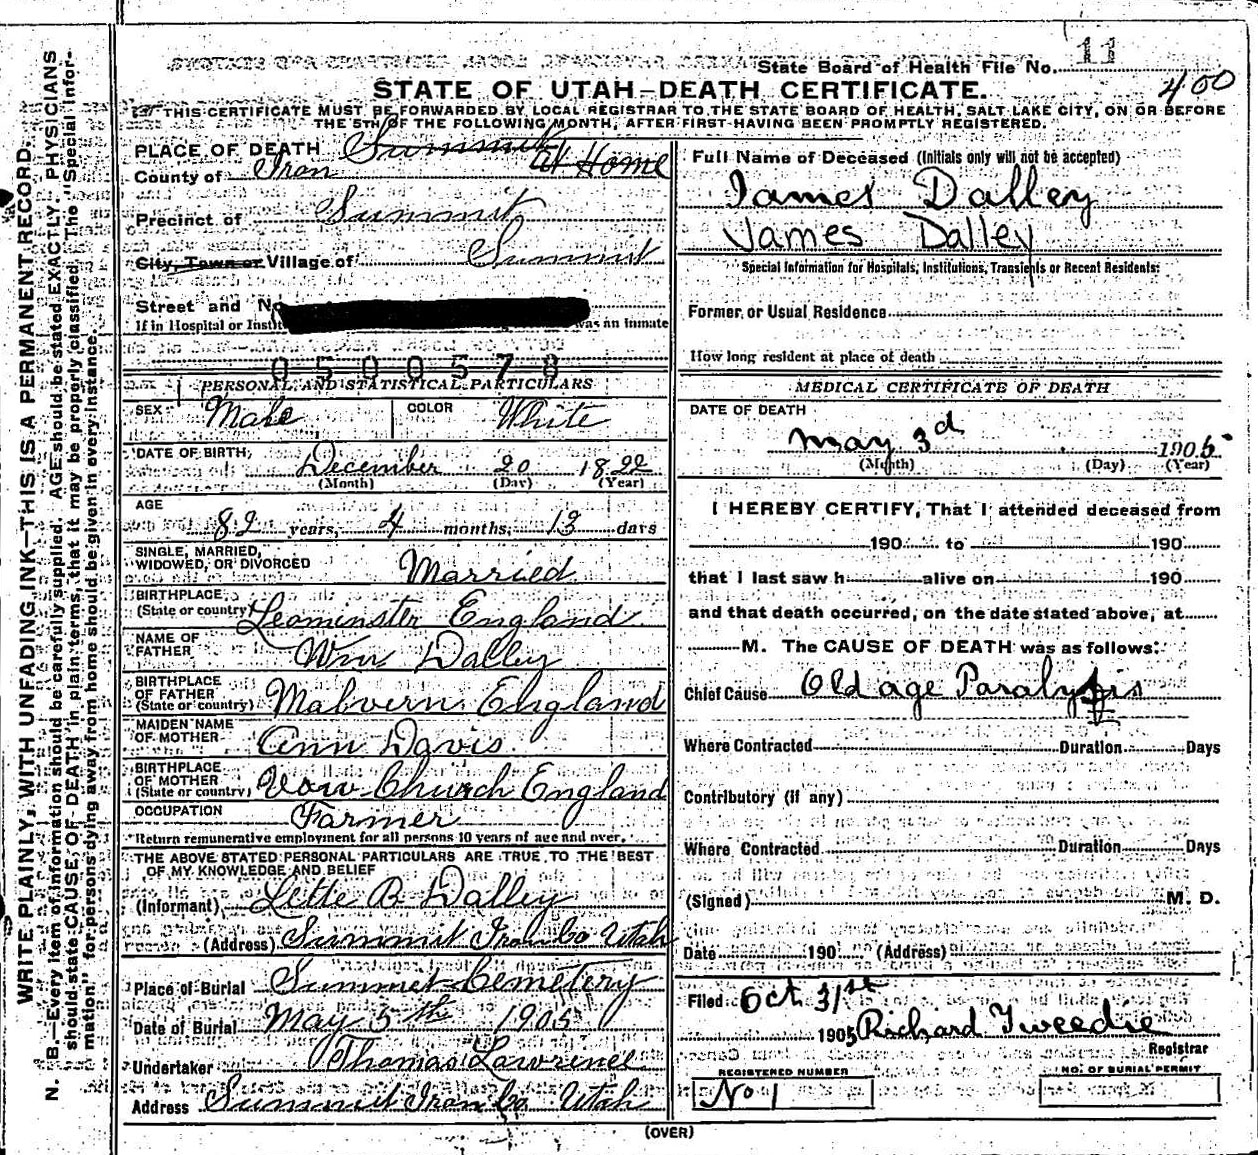 State Board of Health File No. 11
400
STATE OF UTAH—DEATH CERTIFICATE.
THIS CERTIFICATE MUST BE FORWARDED BY LOCAL REGISTRAR TO THE STATE BOARD OF HEALTH, SALT LAKE CITY, ON OR BEFORE
THE 5TH OF THE FOLLOWING MONTH, AFTER FIRST HAVING BEEN PROMPTLY REGISTERED.
WRITE PLAINLY, WITH UNFADING INK—THIS IS A PERMANENT RECORD.
N. B.—Every item of information should be carefully supplied. AGE should be stated EXACTLY. PHYSICIANS
should state CAUSE OF DEATH in plain terms, that it may be properly classified. The "Special Infor-
mation" for persons dying away from home should be given in every instance.
PLACE OF DEATH Summit
County of Iron At Home
Precinct of Summit
City, Town or Village of Summit
Street and No
If in Hospital or Instit was an inmate
0500578
PERSONAL AND STATISTICAL PARTICULARS
SEX Male COLOR White
DATE OF BIRTH, December 20 1822
(Month) (Day) (Year)
AGE 82 years, 4 months, 13 days
SINGLE, MARRIED,
WIDOWED, OR DIVORCED Married
BIRTHPLACE
(State or country) Leominster England
NAME OF
FATHER Wm Dalley
BIRTHPLACE
OF FATHER
(State or country) Malvern England
MAIDEN NAME
OF MOTHER Ann Davis
BIRTHPLACE
OF MOTHER
(State or country) Vow-Church England
OCCUPATION Farmer
Return remunerative employment for all persons 10 years of age and over.
THE ABOVE STATED PERSONAL PARTICULARS ARE TRUE TO THE BEST
OF MY KNOWLEDGE AND BELIEF
(Informant) Lettie B Dalley
(Address) Summit Iron Co Utah
Place of Burial Summit Cemetery
Date of Burial May 5th 1905
Undertaker Thomas Lawrence
Address Summit Iron Co Utah
Full Name of Deceased (Initials only will not be accepted)
James Dalley
James Dalley
Special Information for Hospitals, Institutions, Transients or Recent Residents:
Former or Usual Residence
How long resident at place of death
MEDICAL CERTIFICATE OF DEATH
DATE OF DEATH
May 3d 1905
(Month) (Day) (Year)
I HEREBY CERTIFY, That I attended deceased from
190 to 190
that I last saw h alive on 190
and that death occurred, on the date stated above, at
M. The CAUSE OF DEATH was as follows:
Chief Cause Old age Paralysis
Where Contracted Duration Days
Contributory (if any)
Where Contracted Duration Days
(Signed) M. D.
Date 190 (Address)
Filed Oct 31st
1905 Richard Tweedie
Registrar
REGISTERED NUMBER
No 1
NO. OF BURIAL PERMIT
(OVER)